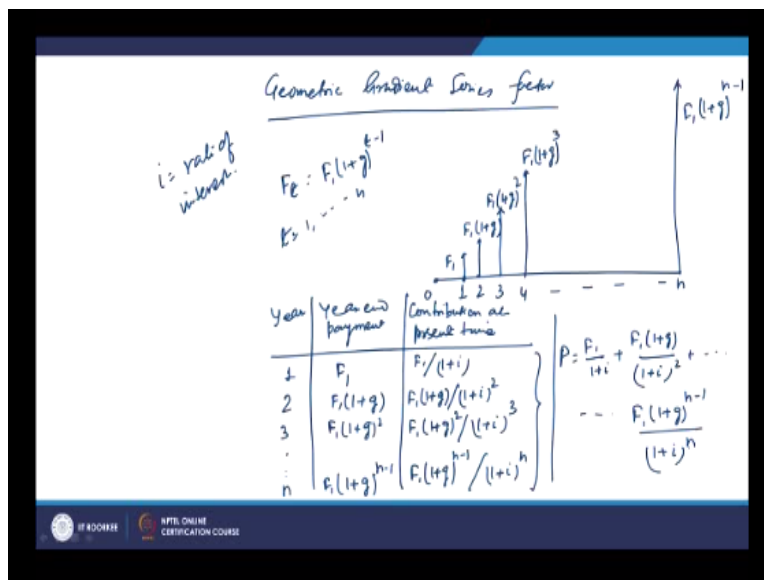 Geometric Gradient Series factor
i = rate of
interest.
F_t = F₁(1+g)^(t-1)
t = 1, --- n
F₁
F₁(1+g)
F₁(1+g)²
F₁(1+g)³
F₁(1+g)^(n-1)
0 1 2 3 4 - - - - n
Year | Year end payment | Contribution at present time
1 | F₁ | F₁/(1+i)
2 | F₁(1+g) | F₁(1+g)/(1+i)²
3 | F₁(1+g)² | F₁(1+g)²/(1+i)³
n | F₁(1+g)^(n-1) | F₁(1+g)^(n-1)/(1+i)^n
P = F₁/(1+i) + F₁(1+g)/(1+i)² + ---
--- F₁(1+g)^(n-1)/(1+i)^n
IIT ROORKEE
NPTEL ONLINE
CERTIFICATION COURSE